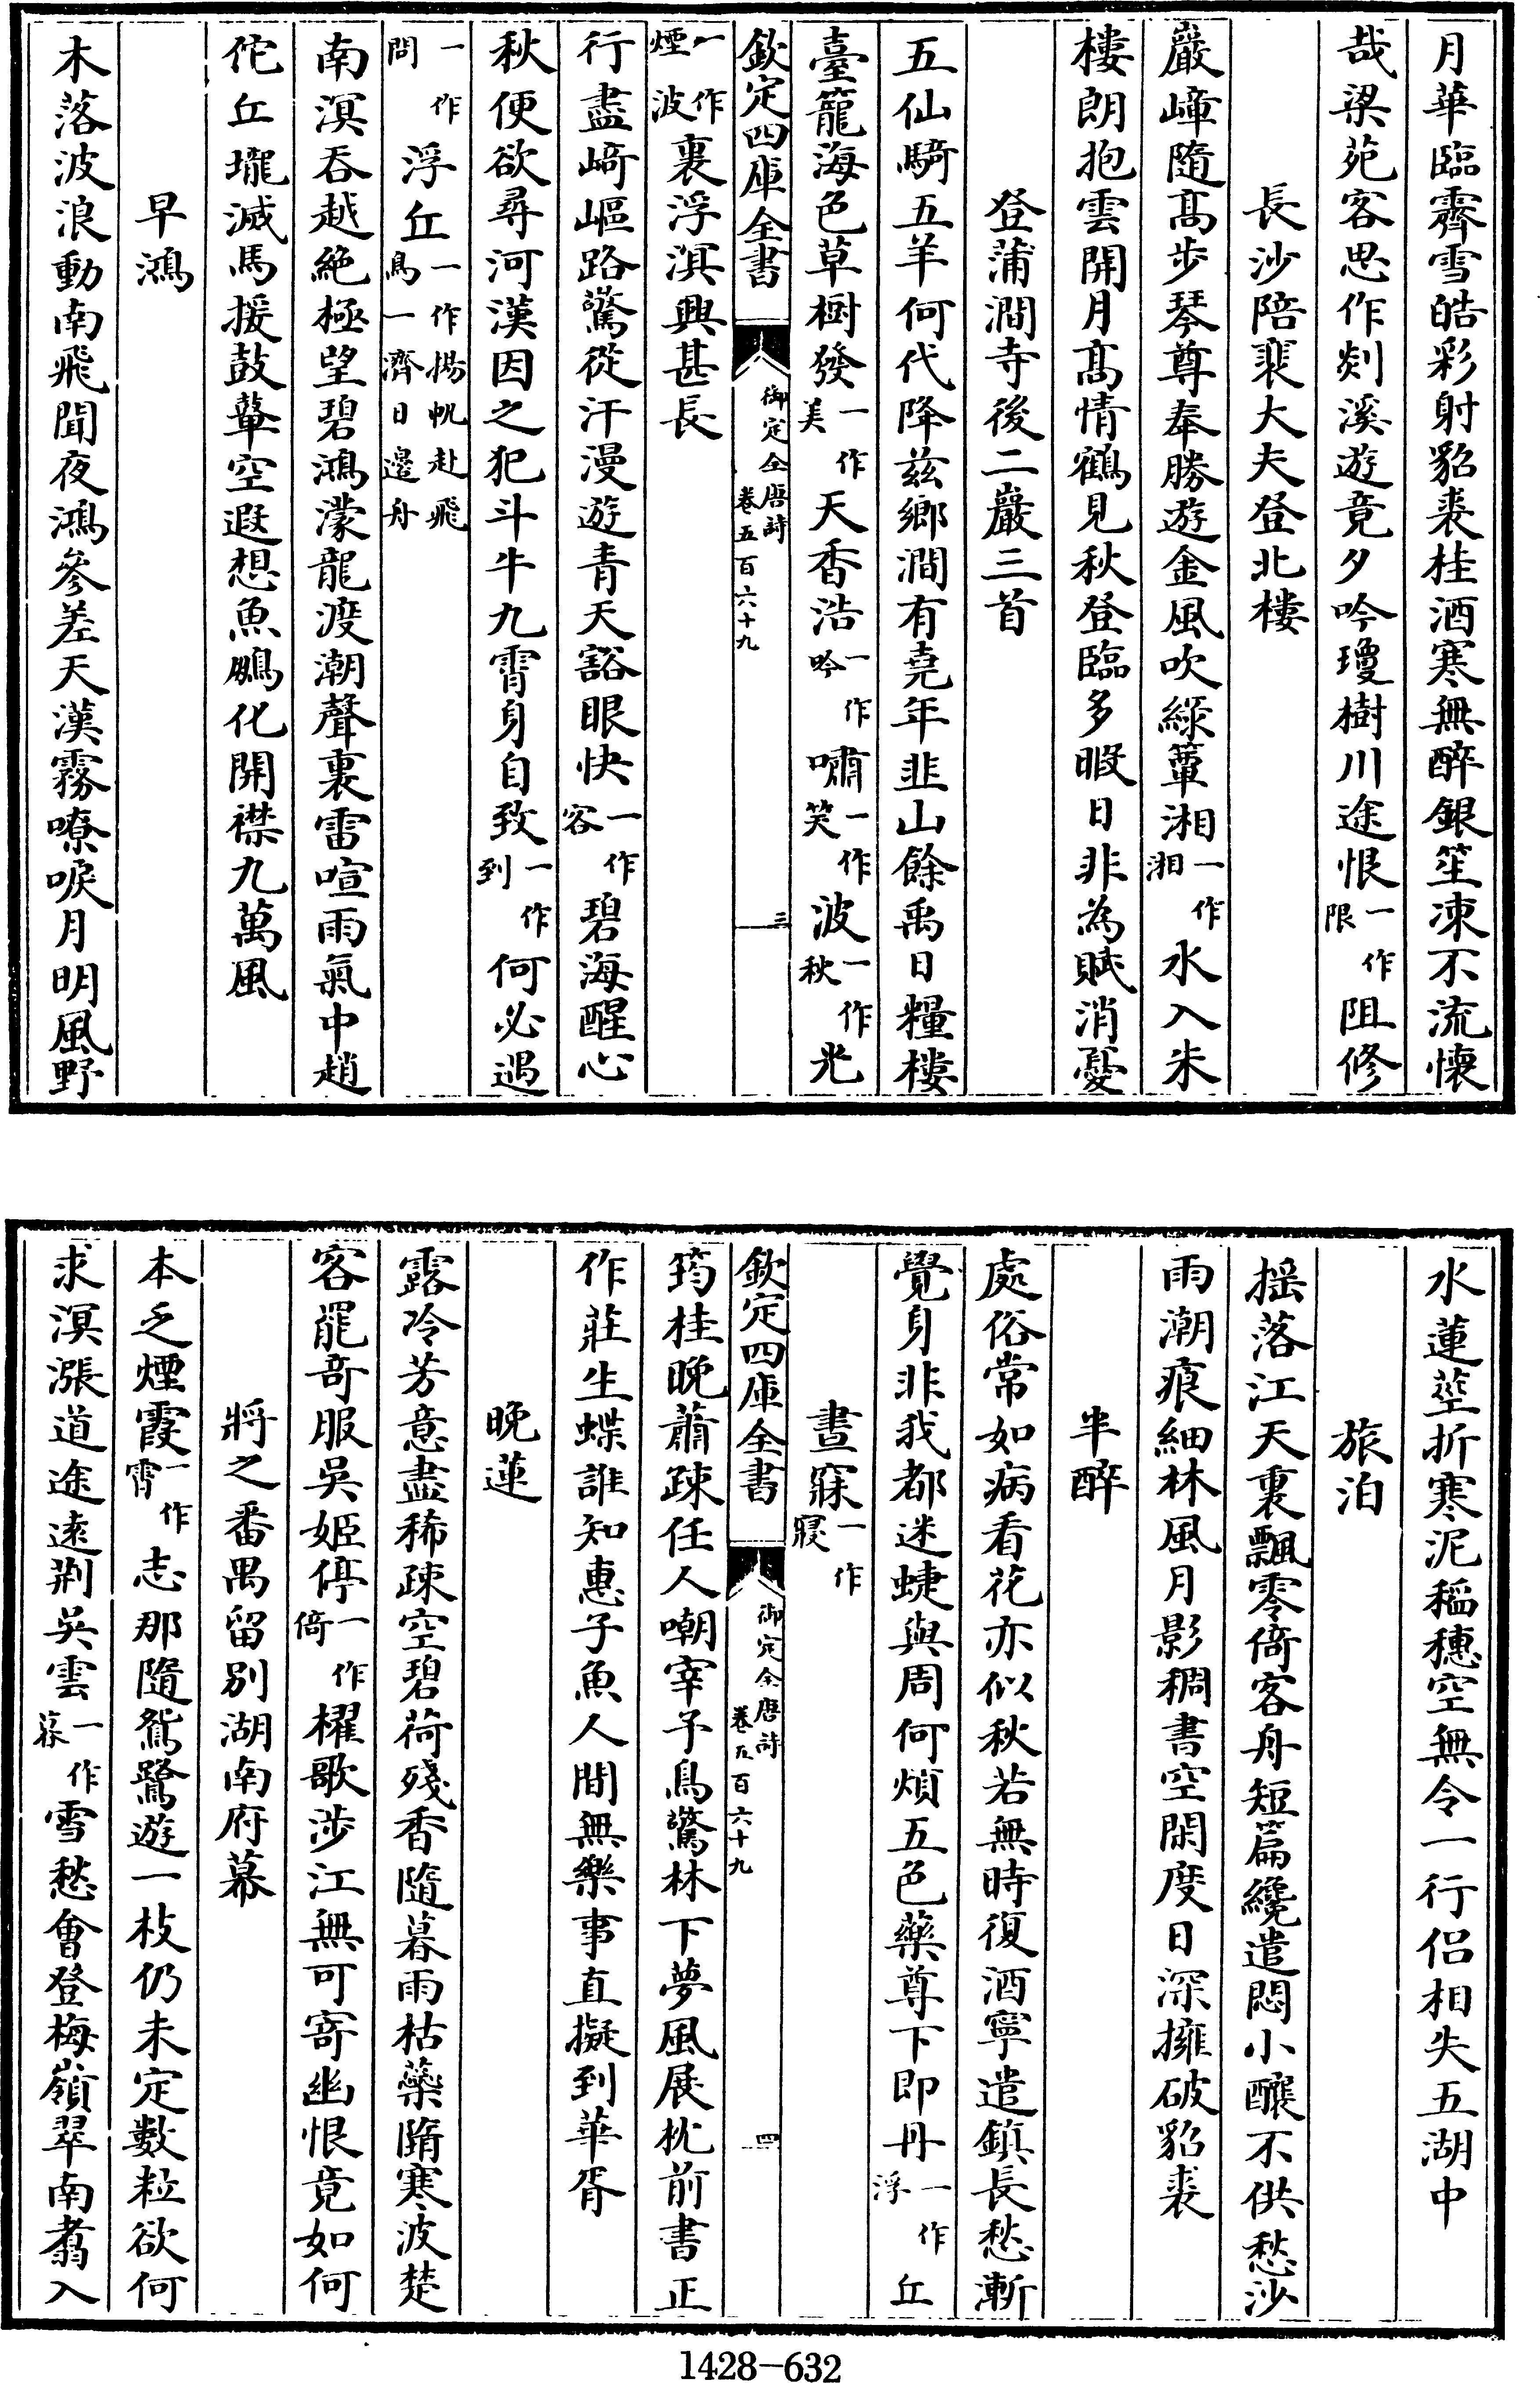 月華臨霽雪皓彩射貂裘桂酒寒無醉銀笙凍不流懷
哉梁苑客思作剡溪遊竟夕吟瓊樹川途恨一作限阻修
長沙陪裴大夫登北樓
嚴嶂隨高步琴尊奉勝遊金風吹綠簟湘一作湘水入朱
樓朗抱雲開月高情鶴見秋登臨多暇日非為賦消憂
登蒲澗寺後二巖三首
五仙騎五羊何代降兹鄉澗有堯年韭山餘禹日糧樓
臺籠海色草樹發一作美天香浩一作吟嘯一作笑波一作秋光
欽定四庫全書
御定全唐詩
卷五百六十九
三
一作煙波裏浮溟興甚長
行盡崎嶇路驚從汗漫遊青天豁眼快一作客碧海醒心
秋便欲尋河漢因之犯斗牛九霄身自致一作到何必遇
一作問浮丘一作揚帆赴飛鳥一濟日邊舟
南溟吞越絶極望碧鴻濛龍渡潮聲裏雷喧雨氣中趙
佗丘壠滅馬援鼓鼙空遐想魚鵬化開襟九萬風
早鴻
木落波浪動南飛聞夜鴻參差天漢霧嘹唳月明風野
水蓮莖折寒泥稻穗空無令一行侣相失五湖中
旅泊
揺落江天裏飄零倚客舟短篇纔遣悶小釀不供愁沙
雨潮痕細林風月影稠書空閑度日深擁破貂裘
半醉
處俗常如病看花亦似秋若無時復酒寧遣鎮長愁漸
覺身非我都迷蜨與周何煩五色藥尊下即丹一作浮丘
晝寐一作寢
欽定四庫全書
御定全唐詩
卷五百六十九
四
筠桂晚蕭疎任人嘲宰予鳥驚林下夢風展枕前書正
作莊生蝶誰知惠子魚人間無樂事直擬到華胥
晚蓮
露冷芳意盡稀疎空碧荷殘香隨暮雨枯蘂隋寒波楚
客罷奇服吳姬停一作倚櫂歌涉江無可寄幽恨竟如何
將之番禺留别湖南府幕
本乏煙霞一作霄志那隨鴛鷺遊一枝仍未定數粒欲何
求溟漲道途遠荆吳雲一作暮雪愁會登梅嶺翠南翥入
1428-632